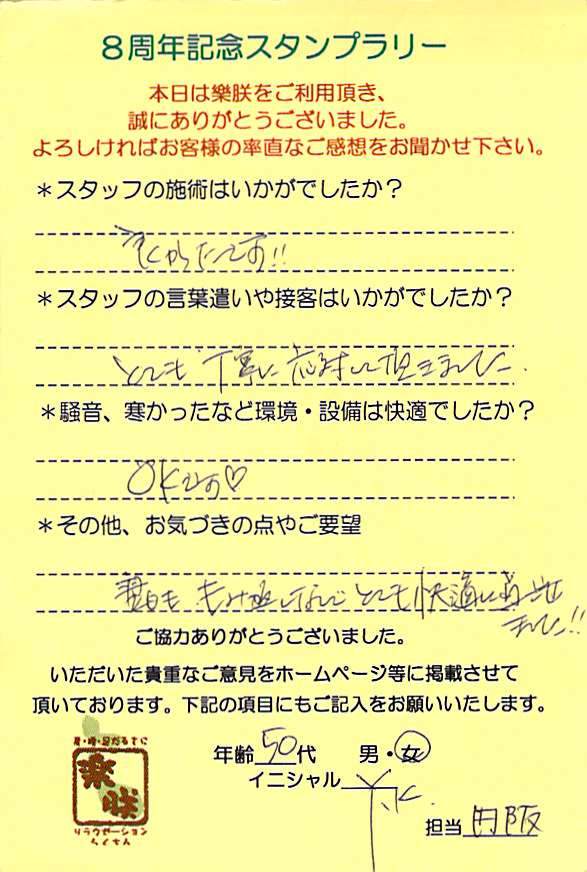 8周年記念スタンプラリー
本日は樂朕をご利用頂き、
誠にありがとうございました。
よろしければお客様の率直なご感想をお聞かせ下さい。
＊スタッフの施術はいかがでしたか？
よかったです!!
＊スタッフの言葉遣いや接客はいかがでしたか？
とても丁寧に応対して頂きました.
＊騒音、寒かったなど環境・設備は快適でしたか？
OKです♡
＊その他、お気づきの点やご要望
もみ返しなしで とても快適に
ました!!
ご協力ありがとうございました。
いただいた貴重なご意見をホームページ等に掲載させて
頂いております。下記の項目にもご記入をお願いいたします。
年齢 50代 男・女
イニシャル
楽朕
リラクゼーション
らくちん
担当